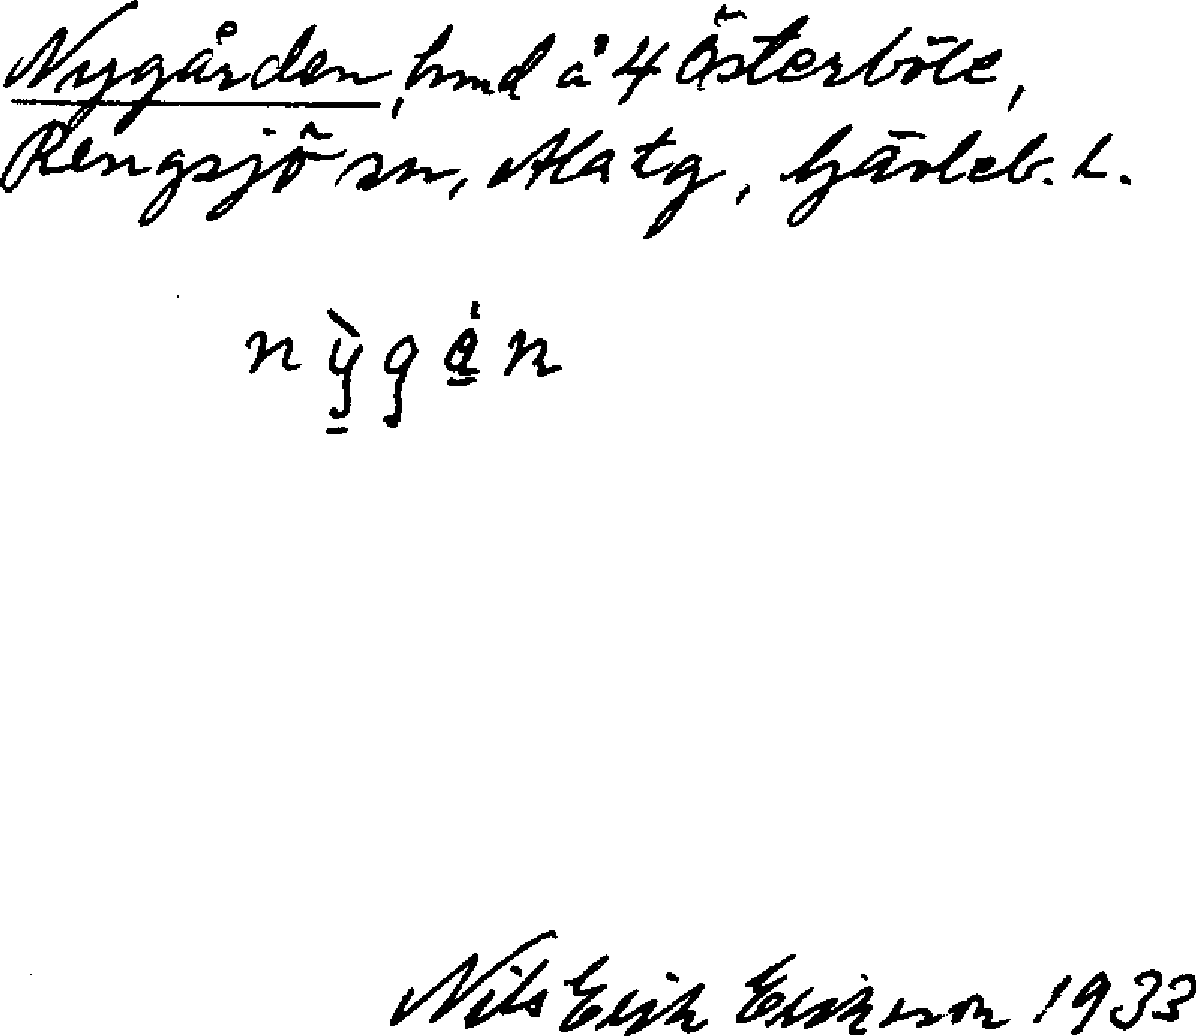 Nygården, hmd å 4 Österböle,
Rengsjö sn, Ala tg, Gävleb. L.
nỳgå̀n
Nils Erik Erikson 1933